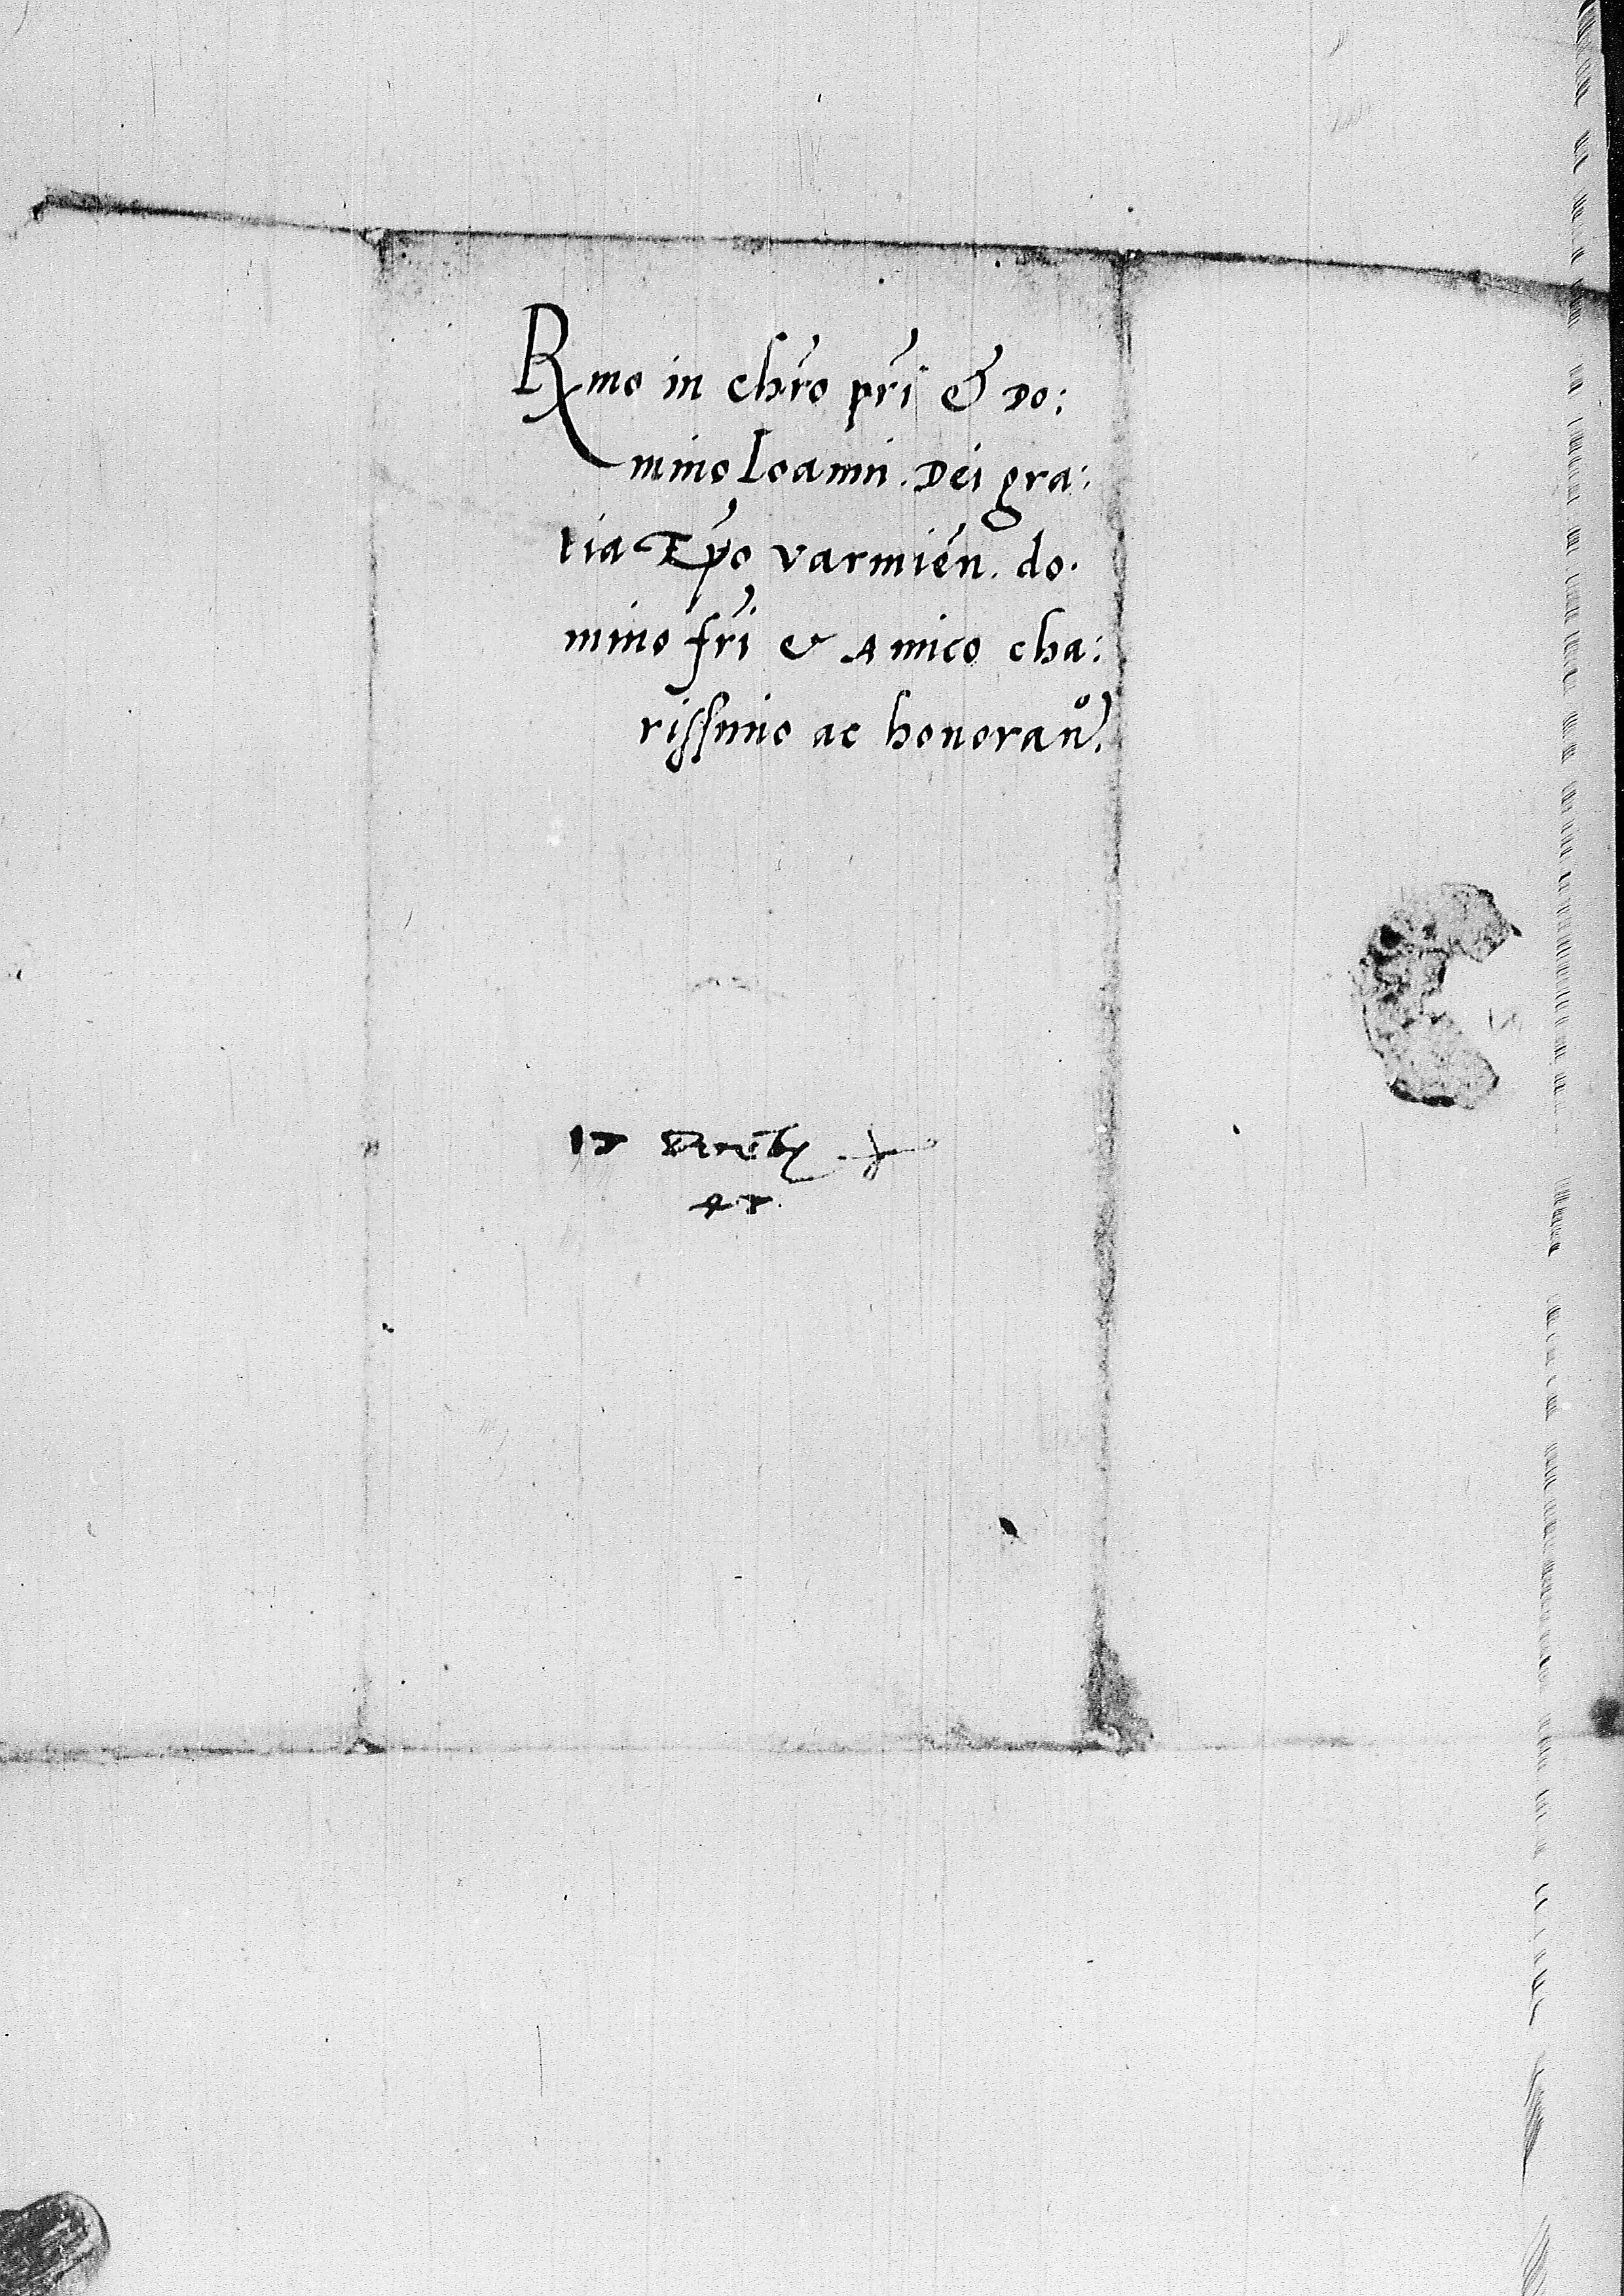 Rmo in chro pri & Do:
mino Ioanni. Dei gra:
tia Epo varmien. do.
mino fri & Amico cha:
rissimo ac honoran.